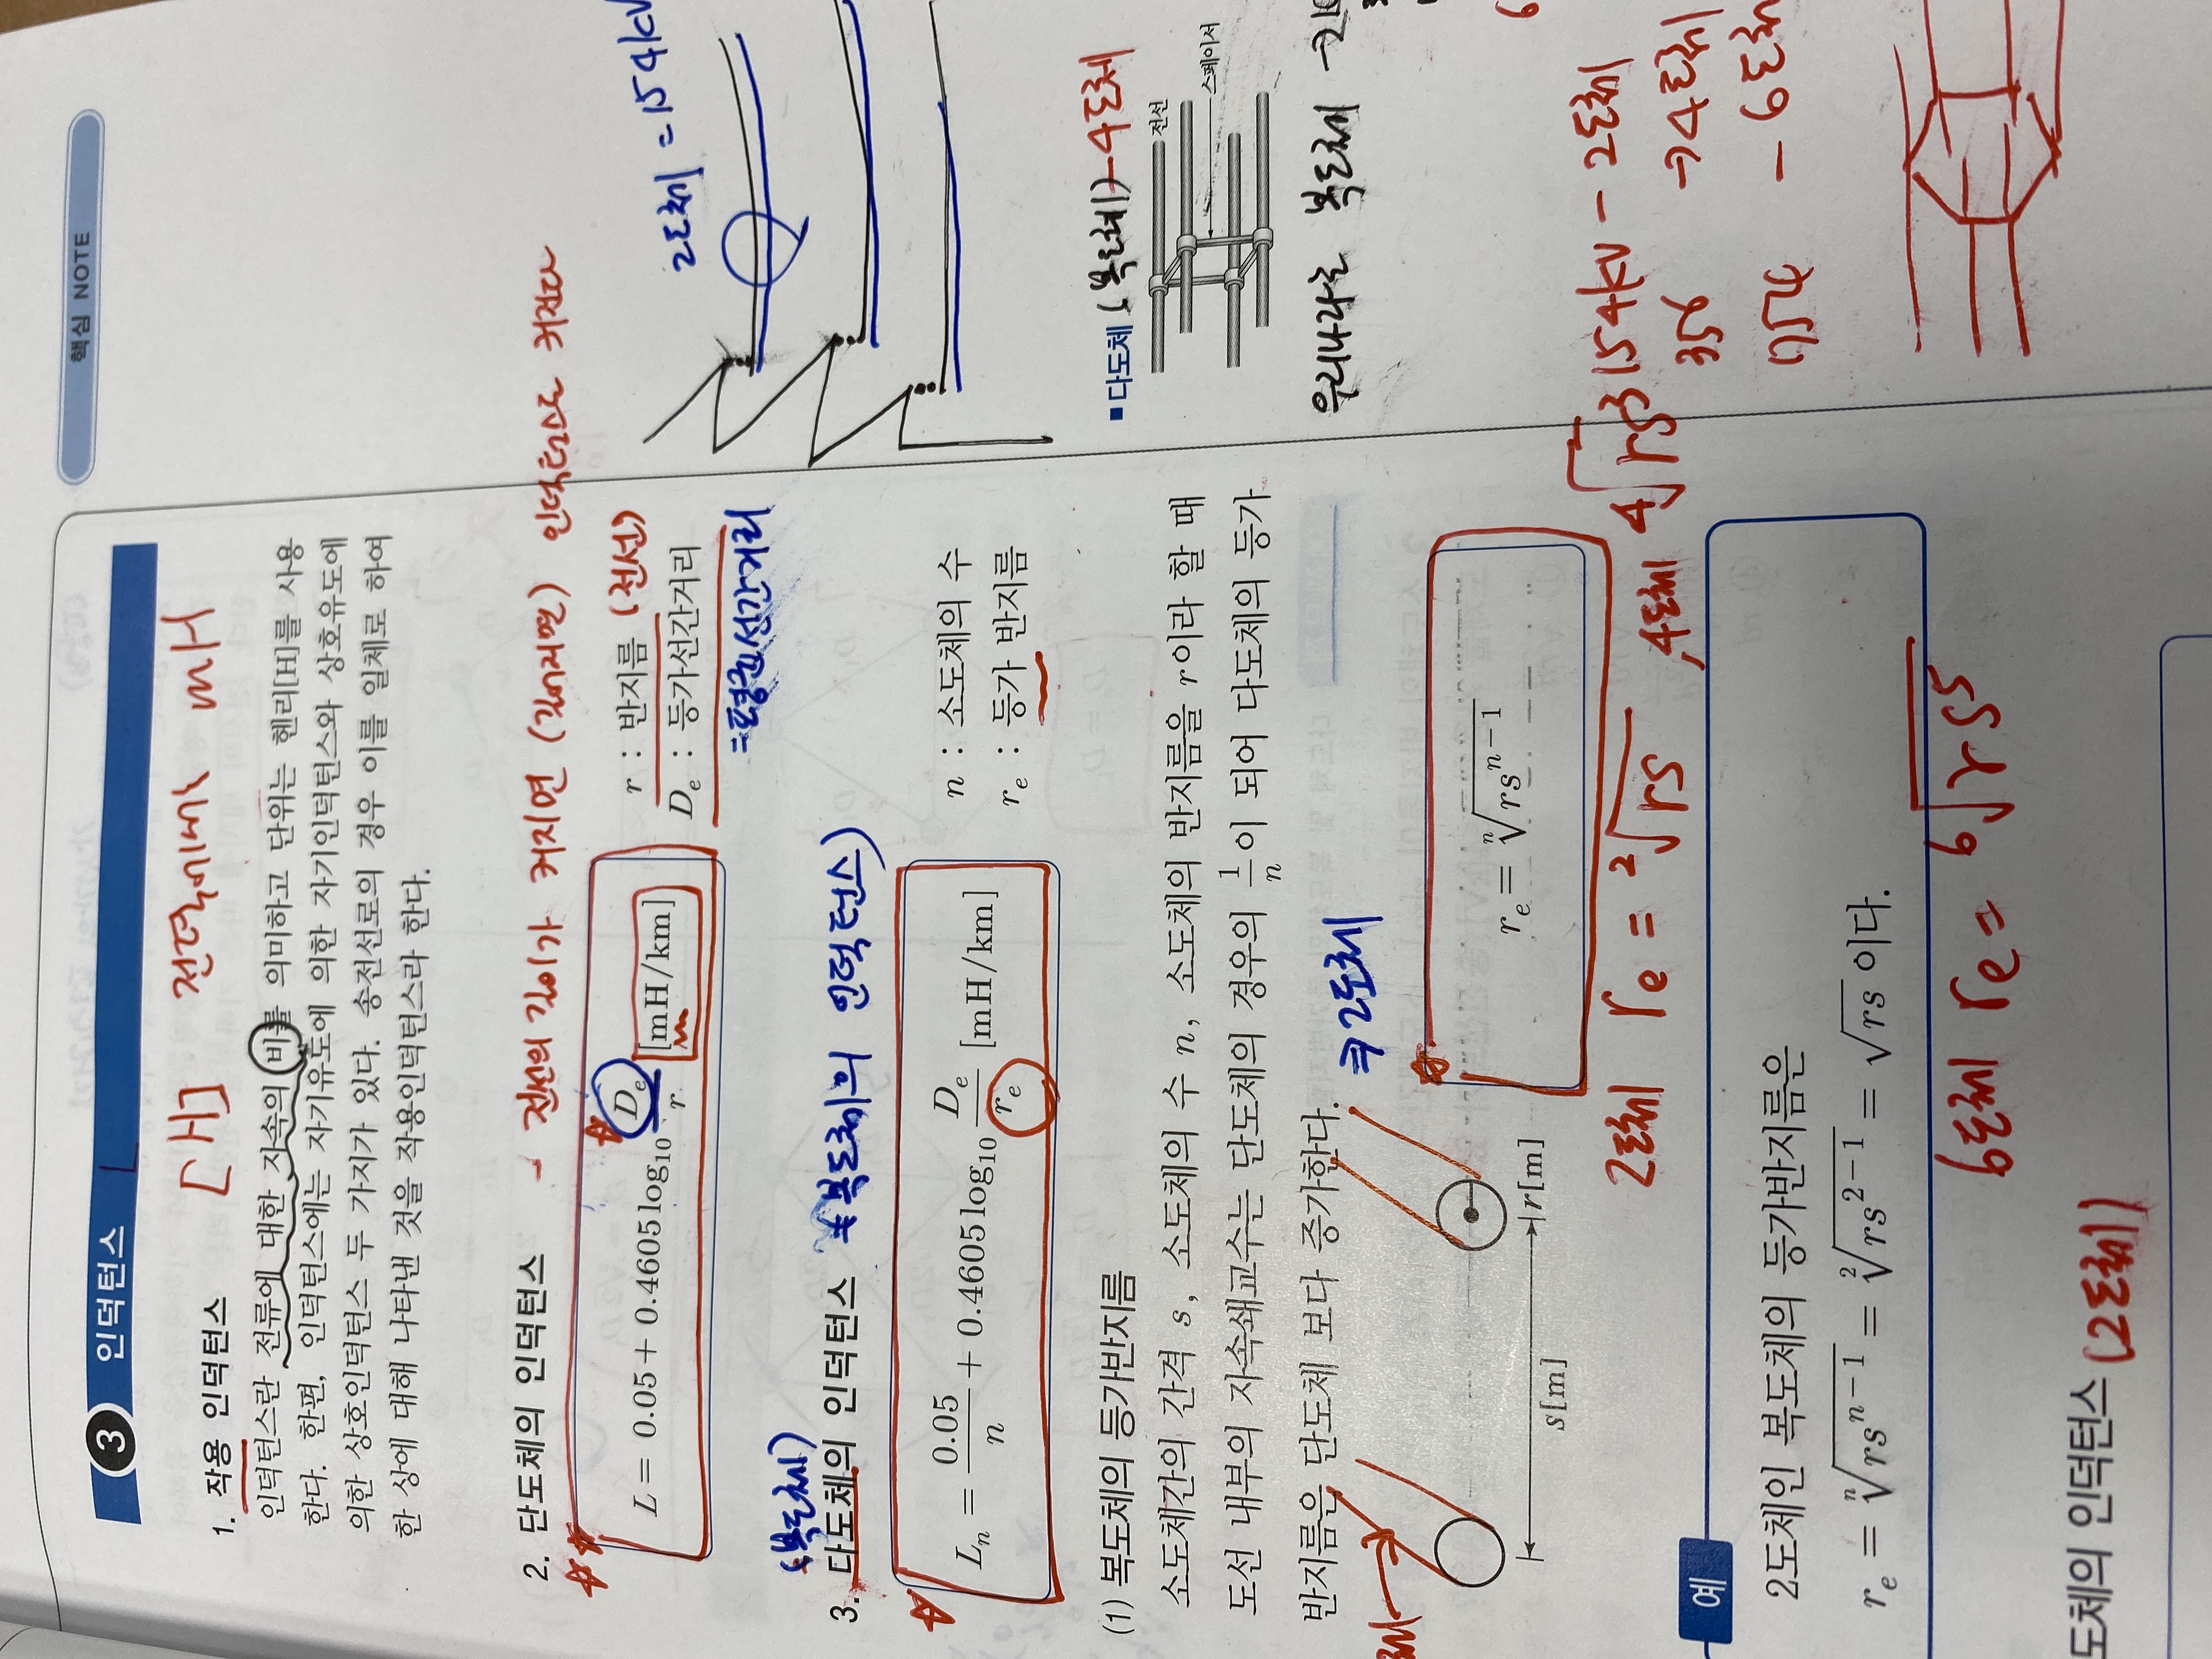 핵심 NOTE
3 인덕턴스
[H] 전력에서 mH
1. 작용 인덕턴스
인덕턴스란 전류에 대한 자속의 비를 의미하고 단위는 헨리[H]를 사용
한다. 한편, 인덕턴스에는 자기유도에 의한 자기인덕턴스와 상호유도에
의한 상호인덕턴스 두 가지가 있다. 송전선로의 경우 이를 일체로 하여
한 상에 대해 나타낸 것을 작용인덕턴스라 한다.
2. 단도체의 인덕턴스
전선의 길이가 커지면 (길어지면) 인덕턴스도 커진다
L = 0.05 + 0.4605 log₁₀ Dₑ/r [mH/km]
r : 반지름 (전선)
Dₑ : 등가선간거리
=평균선간거리
(복도체)
3. 다도체의 인덕턴스 *복도체의 인덕턴스)
Lₙ = 0.05/n + 0.4605 log₁₀ Dₑ/rₑ [mH/km]
n : 소도체의 수
rₑ : 등가 반지름
(1) 복도체의 등가반지름
소도체간의 간격 s, 소도체의 수 n, 소도체의 반지름을 r이라 할 때
도선 내부의 자속쇄교수는 단도체의 경우의 1/n이 되어 다도체의 등가
반지름은 단도체 보다 증가한다.
⇒2도체
s[m]
r[m]
rₑ = ⁿ√(rsⁿ⁻¹)
2도체 re = ²√rs , 4도체 ⁴√rs³
예
2도체인 복도체의 등가반지름은
rₑ = ⁿ√(rsⁿ⁻¹) = ²√(rs²⁻¹) = √rs 이다.
6도체 re = ⁶√rs⁵
도체의 인덕턴스 (2도체)
2도체 = 154kV
▪다도체 (복도체)-4도체
전선
스페이서
우리나라는 복도체
154kV - 2도체
→4도체
- 6도체